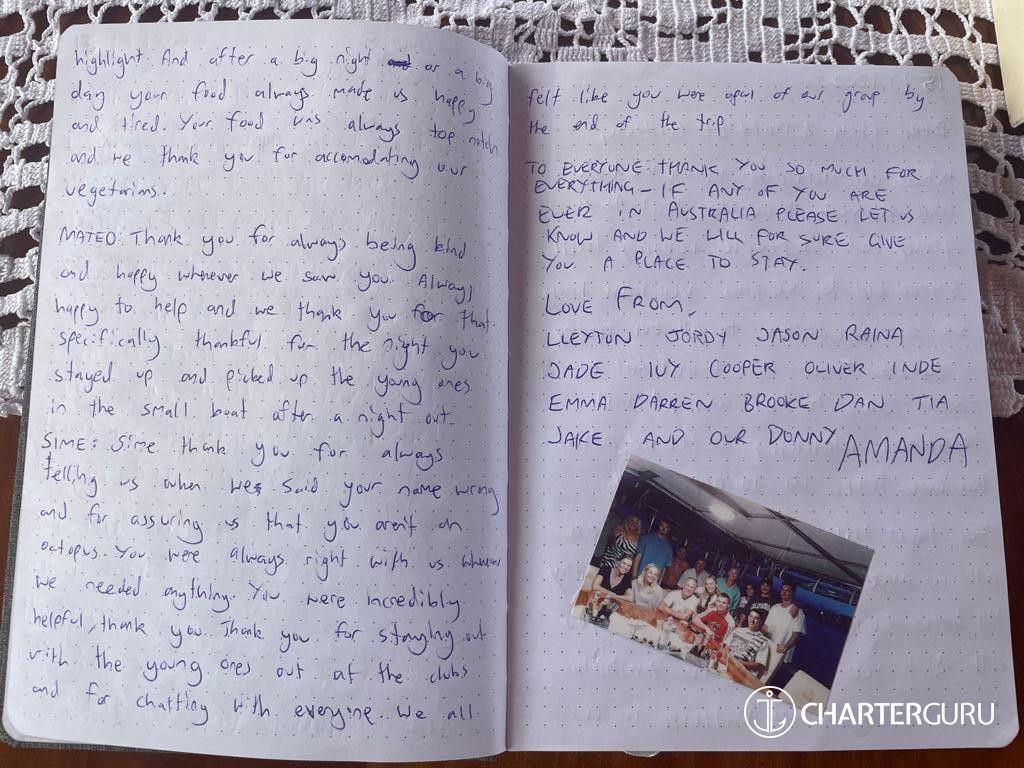 highlight. And after a big night or a big
day your food always made us happy
and tired. Your food was always top notch
and we thank you for accomodating our
vegetarians.
MATEO: Thank you for always being kind
and happy whenever we saw you. Always
happy to help and we thank you for that.
specifically thankful for the night you
stayed up and picked up the young ones
in the small boat after a night out.
SIME: Sime thank you for always
telling us when we said your name wrong
and for assuring us that you aren't an
octopus. You were always right with us whenever
we needed anything. You were incredibly
helpful, thank you. Thank you for staying out
with the young ones out at the clubs
and for chatting with everyone. We all
felt like you were apart of our group by
the end of the trip
TO EVERYONE: THANK YOU SO MUCH FOR
EVERYTHING - IF ANY OF YOU ARE
EVER IN AUSTRALIA PLEASE LET US
KNOW AND WE WILL FOR SURE GIVE
YOU A PLACE TO STAY.
LOVE FROM,
LLEYTON JORDY JASON RAINA
JADE IVY COOPER OLIVER INDE
EMMA DARREN BROOKE DAN TIA
JAKE AND OUR DONNY AMANDA
CHARTERGURU